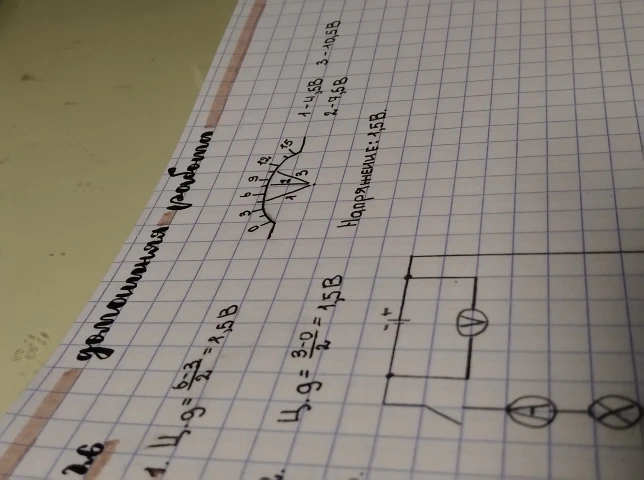 домашняя работа
1. Ц.д = 6-3/2 = 1,5 В
0 3 6 9 12 15
1 2 3
1-4,5В 3-10,5В
2-7,5В
2. Ц.д = 3-0/2 = 1,5 В
Напряжение: 1,5В.
- +
V
A